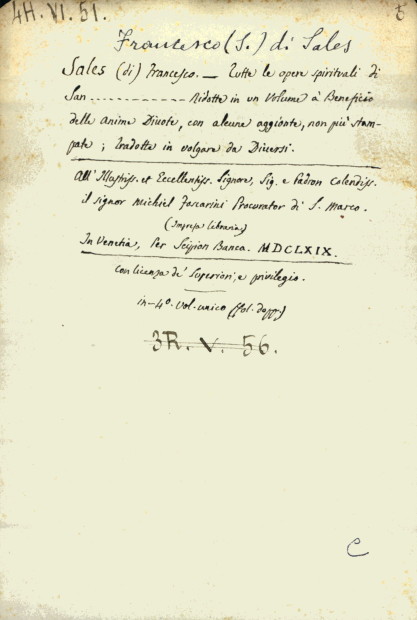 4H. VI. 51.
Francesco (S.) di Sales
Sales (di) Francesco. — Tutte le opere spirituali di
San ------------- Ridotte in un Volume à Beneficio
delle anime Divote, con alcune aggionte, non più stam-
pate; tradotte in volgare da Diversi.
All' Illustriss. et Eccellentiss. Signore, Sig. e Padron Colendiss.
il signor Michiel Foscarini Procurator di S. Marco.
(Impresa libraria)
In Venetia, Per Scipion Banca. MDCLXIX.
Con licenza de' Superiori, e privilegio.
in-4°. vol. unico (fol. dopp.)
3R. V. 56.
C